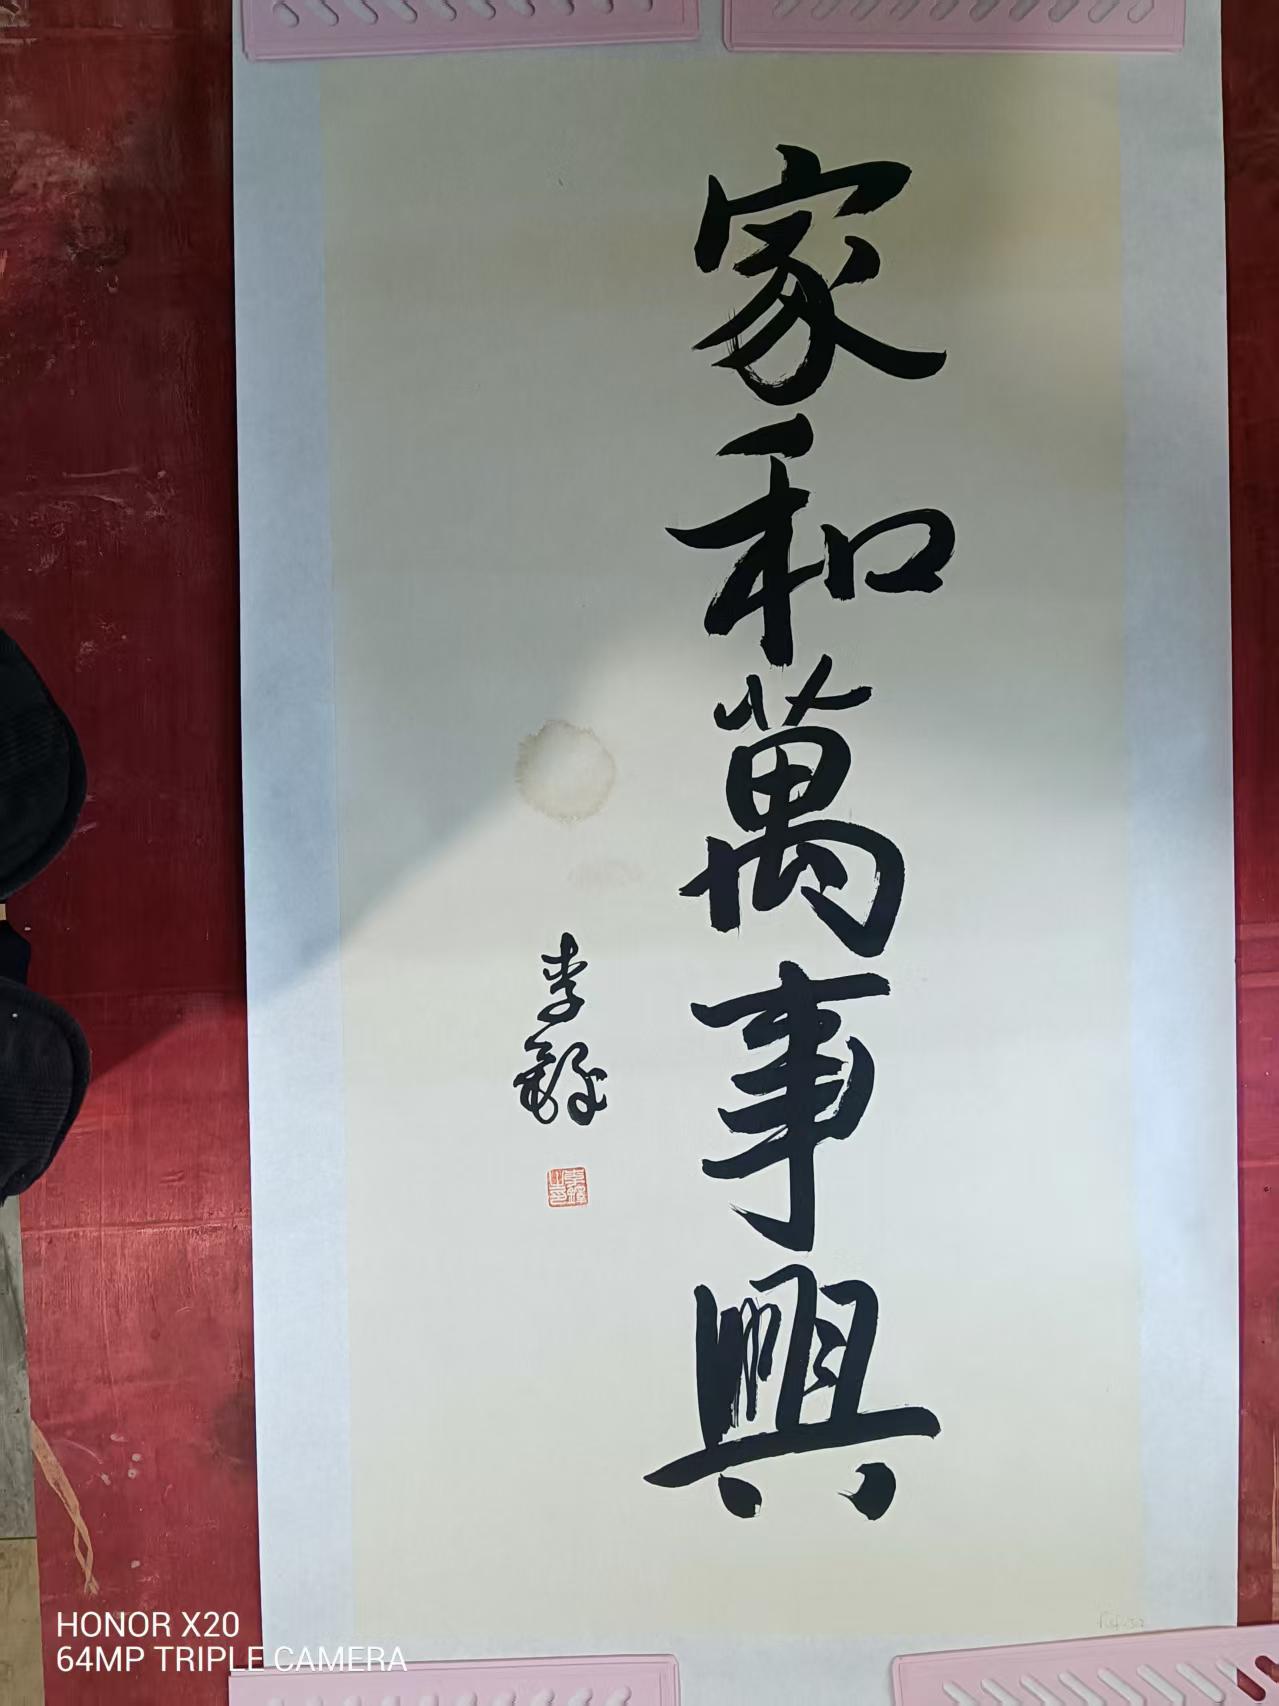 家和萬事興
李鐸
HONOR X20
64MP TRIPLE CAMERA